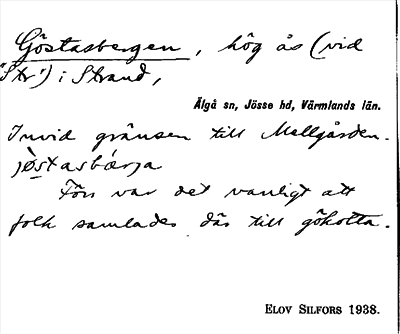 Göstasbergen, hög ås (vid
"Str") i Strand,
Älgå sn, Jösse hd, Värmlands län.
Invid gränsen till Mellgården.
jø̀stasbærja
Förr var det vanligt att
folk samlades där till gökotta.
ELOV SILFORS 1938.